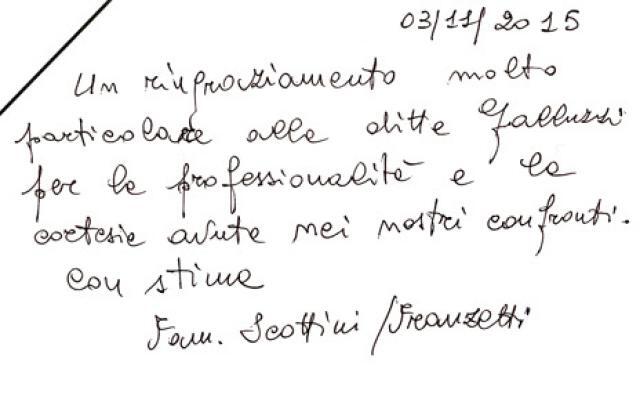 03/11/2015
Un ringraziamento molto
particolare alla ditta Galluzzi
per la professionalità e la
cortesia avute nei nostri confronti.
con stima
Fam. Scottini / Franzetti